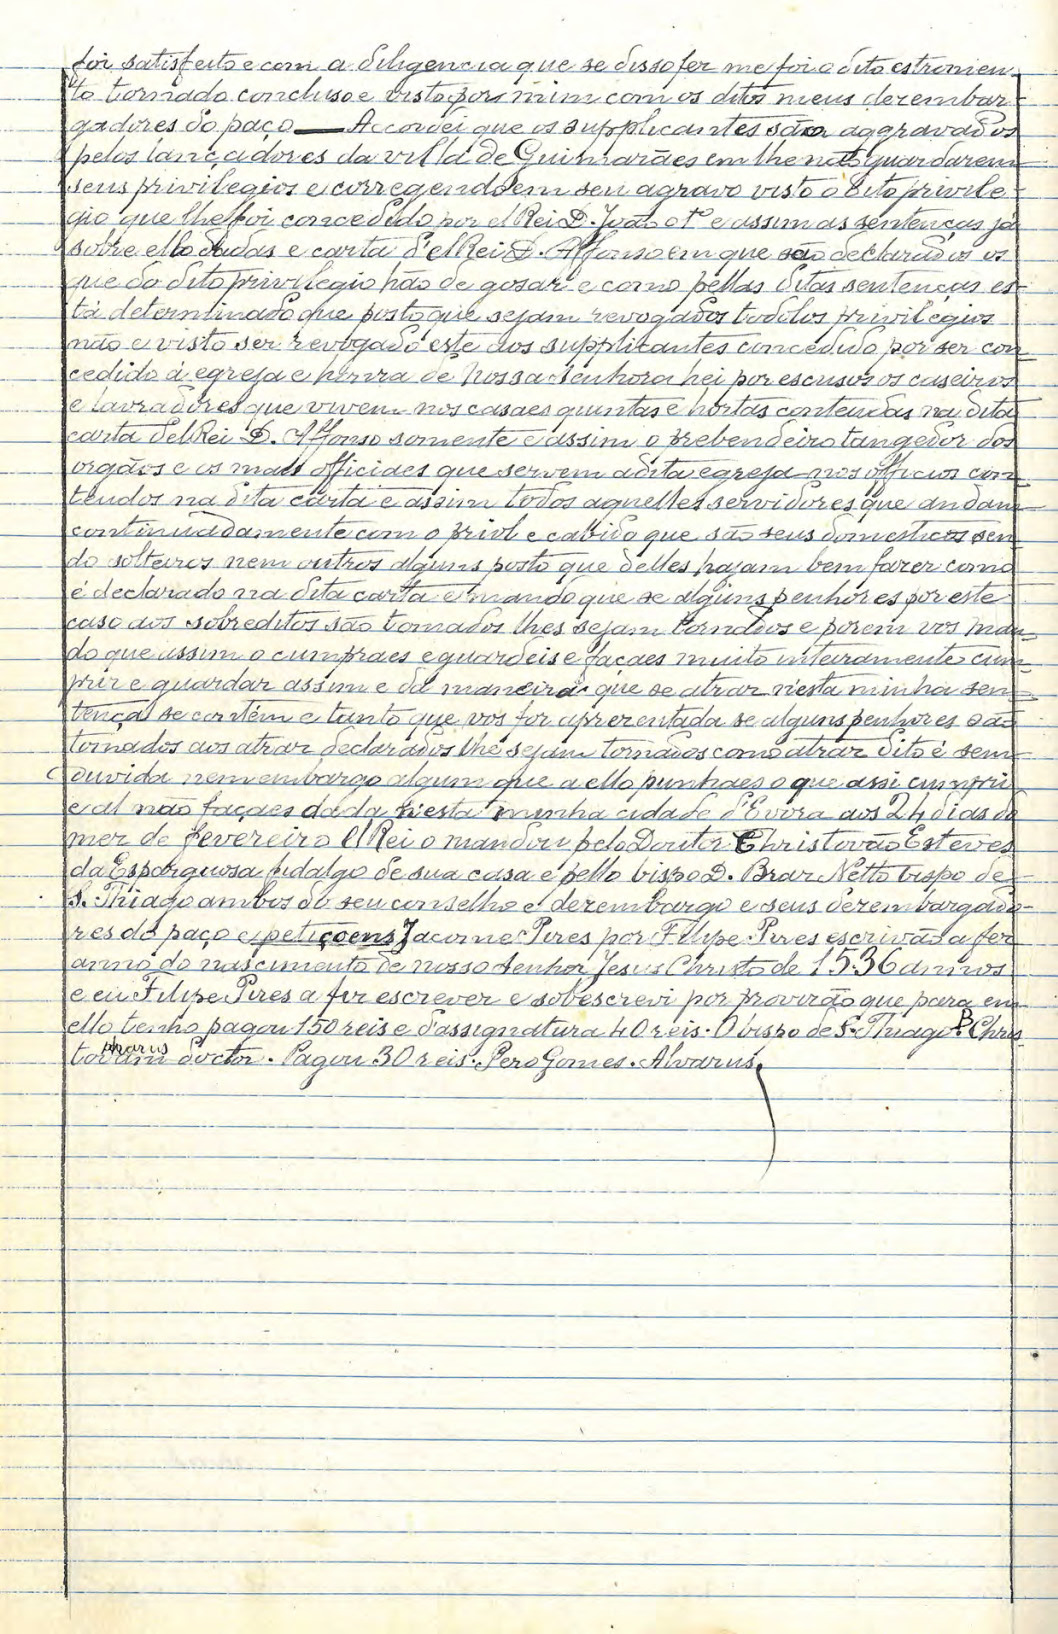 foi satisfeito e com a diligencia que se disso fez me foi o dito estromen
to tornado concluso e visto por mim com os ditos meus dezembar
gadores do paço — Accordei que os supplicantes são aggravados
pelos lançadores da villa de Guimarães em lhe não guardarem
seus privilegios e corregendo em seu agravo visto o dito privile
gio que lhe foi concedido por el Rei D. João o 1º e assim as sentenças já
sobre ello dadas e carta d'el Rei D. Affonso em que são declarados os
que do dito privilegio hão de gosar e como pellas ditas sentenças es
tá determinado que posto que sejam revogados todolos privilegios
não e visto ser revogado este aos supplicantes concedido por ser con
cedido á egreja e honra de Nossa Senhora hei por escusos os caseiros
e lavradores que vivem nos casaes quintas e hortas conteudas na dita
carta del Rei D. Affonso somente e assim o prebendeiro tangedor dos
orgãos e os mais officiaes que servem a dita egreja nos officios con
teudos na dita carta e assim todos aquelles servidores que andam
continuadamente com o priol e cabido que são seus domesticos sen
do solteiros nem outros alguns posto que delles hajam bem fazer como
é declarado na dita carta e mando que se alguns penhores por este
caso aos sobreditos são tomados lhes sejam tornados e porem vos man
do que assim o cumpraes e guardeis e façaes muito inteiramente cum
prir e guardar assim e da maneira que se atraz n'esta minha sen
tença se contém e tanto que vos for aprezentada se alguns penhores são
tomados aos atraz declarados lhe sejam tornados como atraz dito é sem
duvida nem embargo algum que a ello punhaes o que assi cumpri
e al não façaes dada n'esta minha cidade d'Evora aos 24 dias do
mez de fevereiro El Rei o mandou pelo Doutor Christovão Esteves
da Esparguosa fidalgo de sua casa e pello bispo D. Braz Netto bispo de
S. Thiago ambos do seu conselho e dezembargo e seus dezembargado-
res do paço e petiçoens Jacome Pires por Filipe Pires escrivão a fez
anno do nascimento de nosso Senhor Jesus Christo de 1536 annos
e eu Filipe Pires a fiz escrever e sobescrevi por provizão que para em
ello tenho pagou 150 reis e d'assignatura 40 reis. O bispo de S. Thiago. B Chris
tovam doctor. Pagou 30 reis. Pero Gomes. Alvarus.